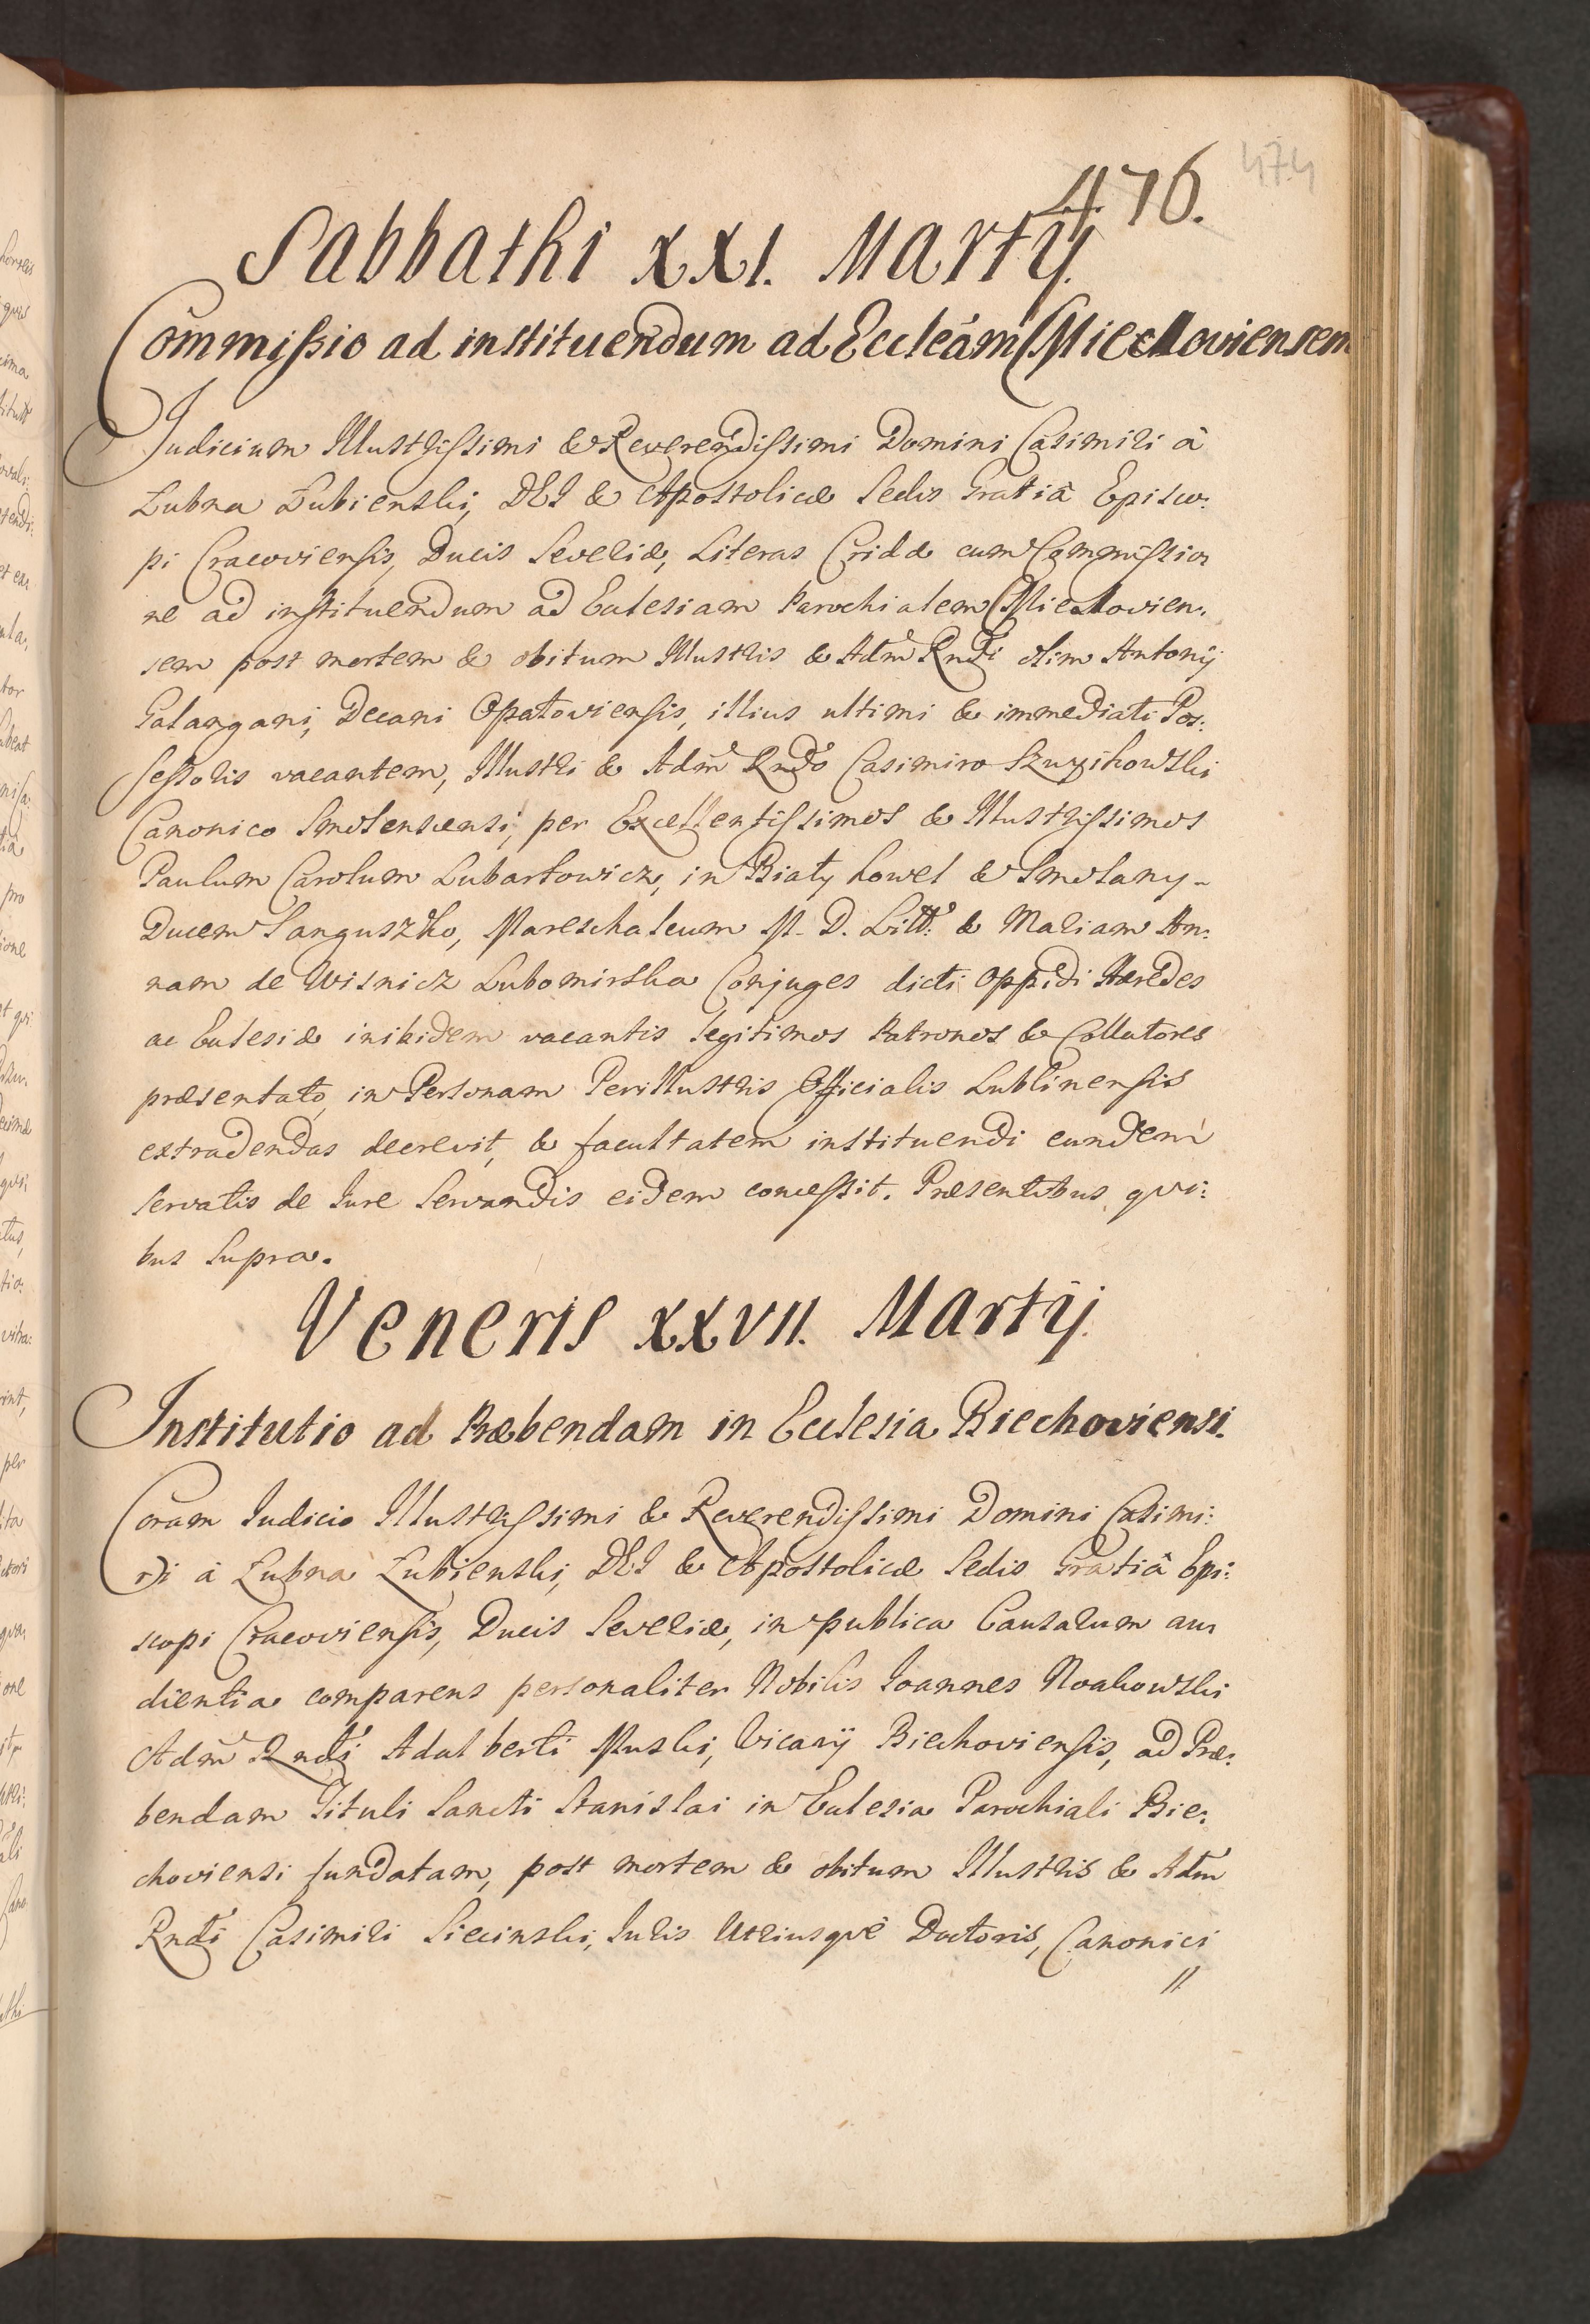 476.
474
Sabbathi XXI. Martij.
Commissio ad instituendum ad Eccleam Miechoviensem
Judicium Illustrissimi & Reverendissimi Domini Casimiri à
Lubna Lubienski, DEI & Apostolicæ Sedis Gratiâ Episco:
pi Cracoviensis, Ducis Severiæ, Literas Cridæ cum Commissio
ne ad instituendum ad Ecclesiam Parochialem Miechovien:
sem post mortem & obitum Illustris & Adm Rndi olim Antonij
Galangani, Decani Opatoviensis, illius ultimi & immediati Pos:
sessoris vacantem, Illustri & Adm Rndo Casimiro Szwykowski
Canonico Smolenscensi, per Excellentissimos & Illustrissimos
Paulum Carolum Lubartowicz, in Biały Kowel & Smolany
Ducem Sanguszko, Mareschalcum M. D. Litt: & Mariam An:
nam de Wisnicz Lubomirska Conjuges dicti Oppidi Hæredes
ac Ecclesiæ inibidem vacantis legitimos Patronos & Collatores
præsentato, in Personam Perillustris Officialis Lublinensis
extradendas decrevit, & facultatem instituendi eundem
servatis de Jure Servandis eidem concessit. Præsentibus qui:
bus Supra.
Veneris XXVII. Martij.
Institutio ad Præbendam in Ecclesia Biechoviensi.
Coram Judicio Illustrissimi & Reverendissimi Domini Casimi:
ri à Lubna Lubienski, DEI & Apostolicæ Sedis Gratiâ Epi:
scopi Cracoviensis, Ducis Severiæ, in publica Causarum au
dientia comparens personaliter Nobilis Joannes Noakowski
Adm Rndi Adalberti Muski, Vicarij Biechoviensis, ad Præ:
bendam Tituli Sancti Stanislai in Ecclesia Parochiali Bie:
choviensi fundatam, post mortem & obitum Illustris & Adm
Rndi Casimiri Siecinski, Juris Utriusque Doctoris, Canonici
//